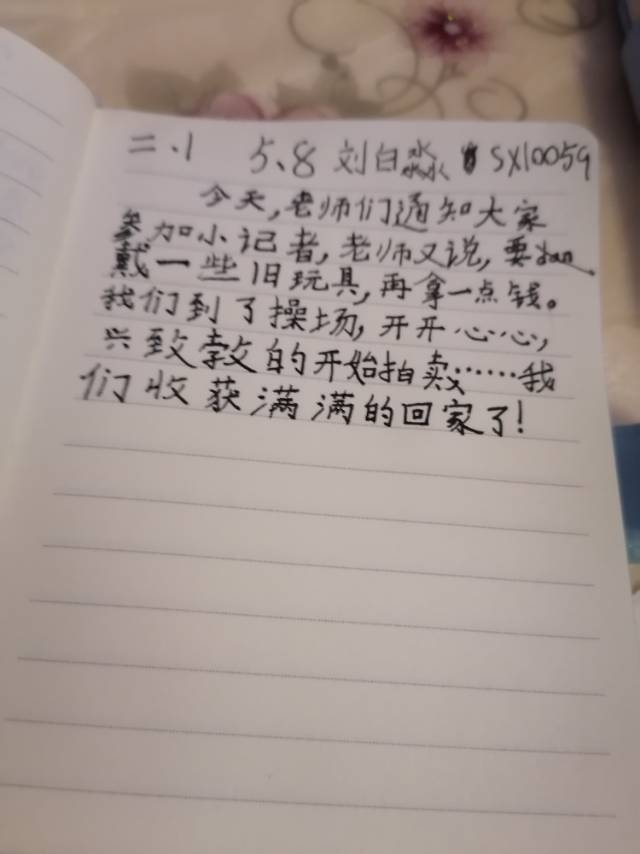 二、1 5、8 刘白淼 SX10059
今天,老师们通知大家
参加小记者,老师又说,要
戴一些旧玩具,再拿一点钱。
我们到了操场,开开心心,
兴致勃勃的开始拍卖……我
们收获满满的回家了!